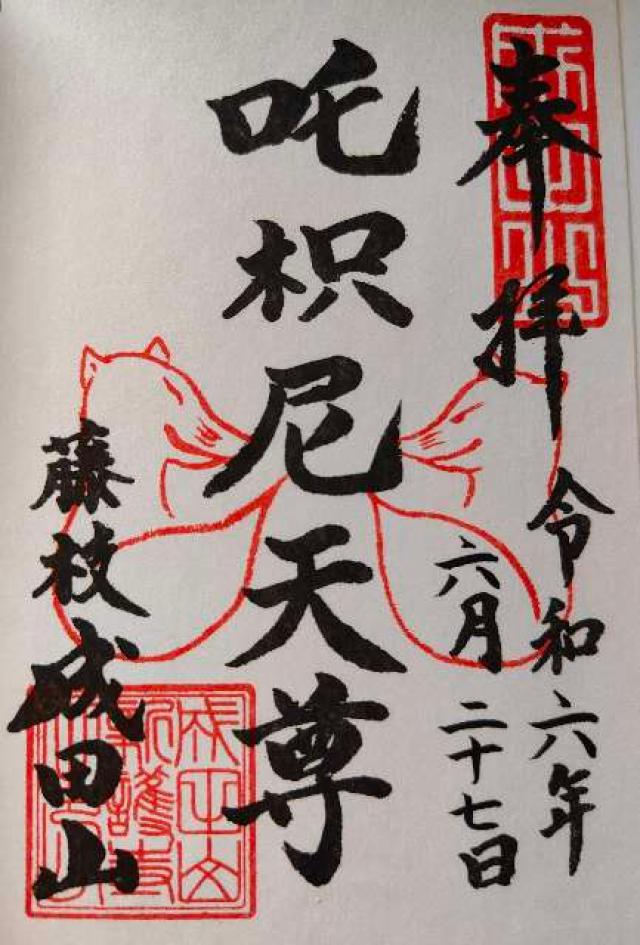 奉拝
令和六年
六月二十七日
吒枳尼天尊
藤枝成田山